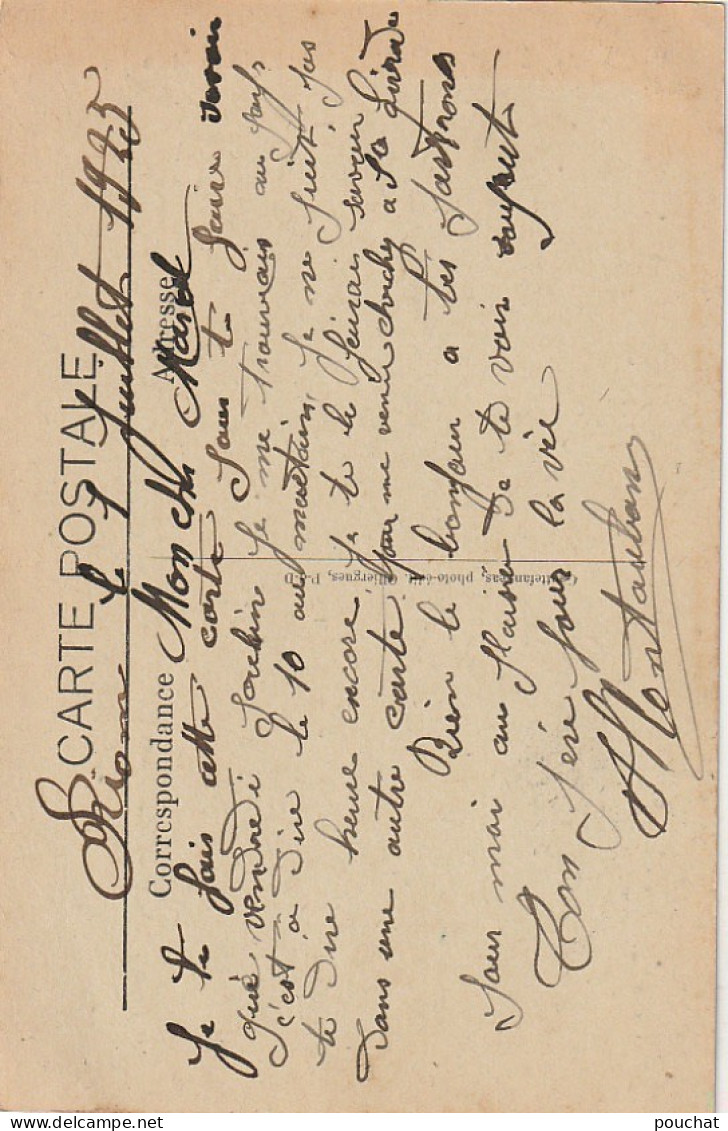 CARTE POSTALE
Riom le 7 Juillet 1925
Correspondance Adresse
Mon cher Marcel
Je te fais cette carte pour te faire savoir
que vendredi prochin je me trouvrais au pays
c'est à dire le 10 au mattain, je ne puit pas
te dire heure encore, je te le ferais savoir
dans une autre carte, pour me venir chercher a Ste Livrade
Bien le bonjour a tes patrons
pour moi au plaisir de te voir
Ton père pour la vie
Montauban
photo-édit. Olliergues, P.-d-D
pouchat